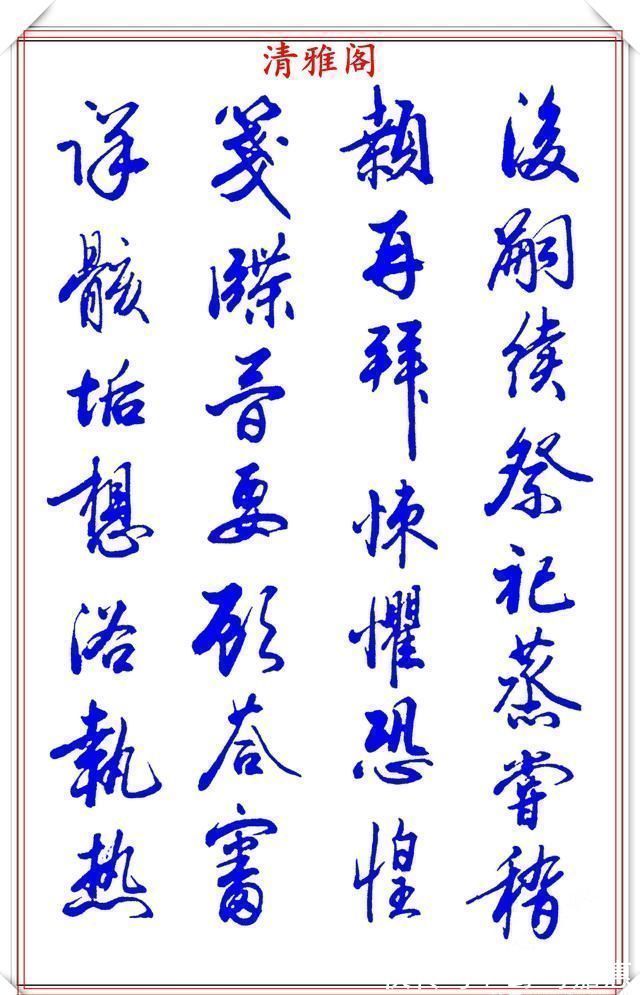 清雅阁
後嗣續祭祀蒸嘗稽
顙再拜悚懼恐惶
箋牒簡要顧荅審
詳骸垢想浴執熱